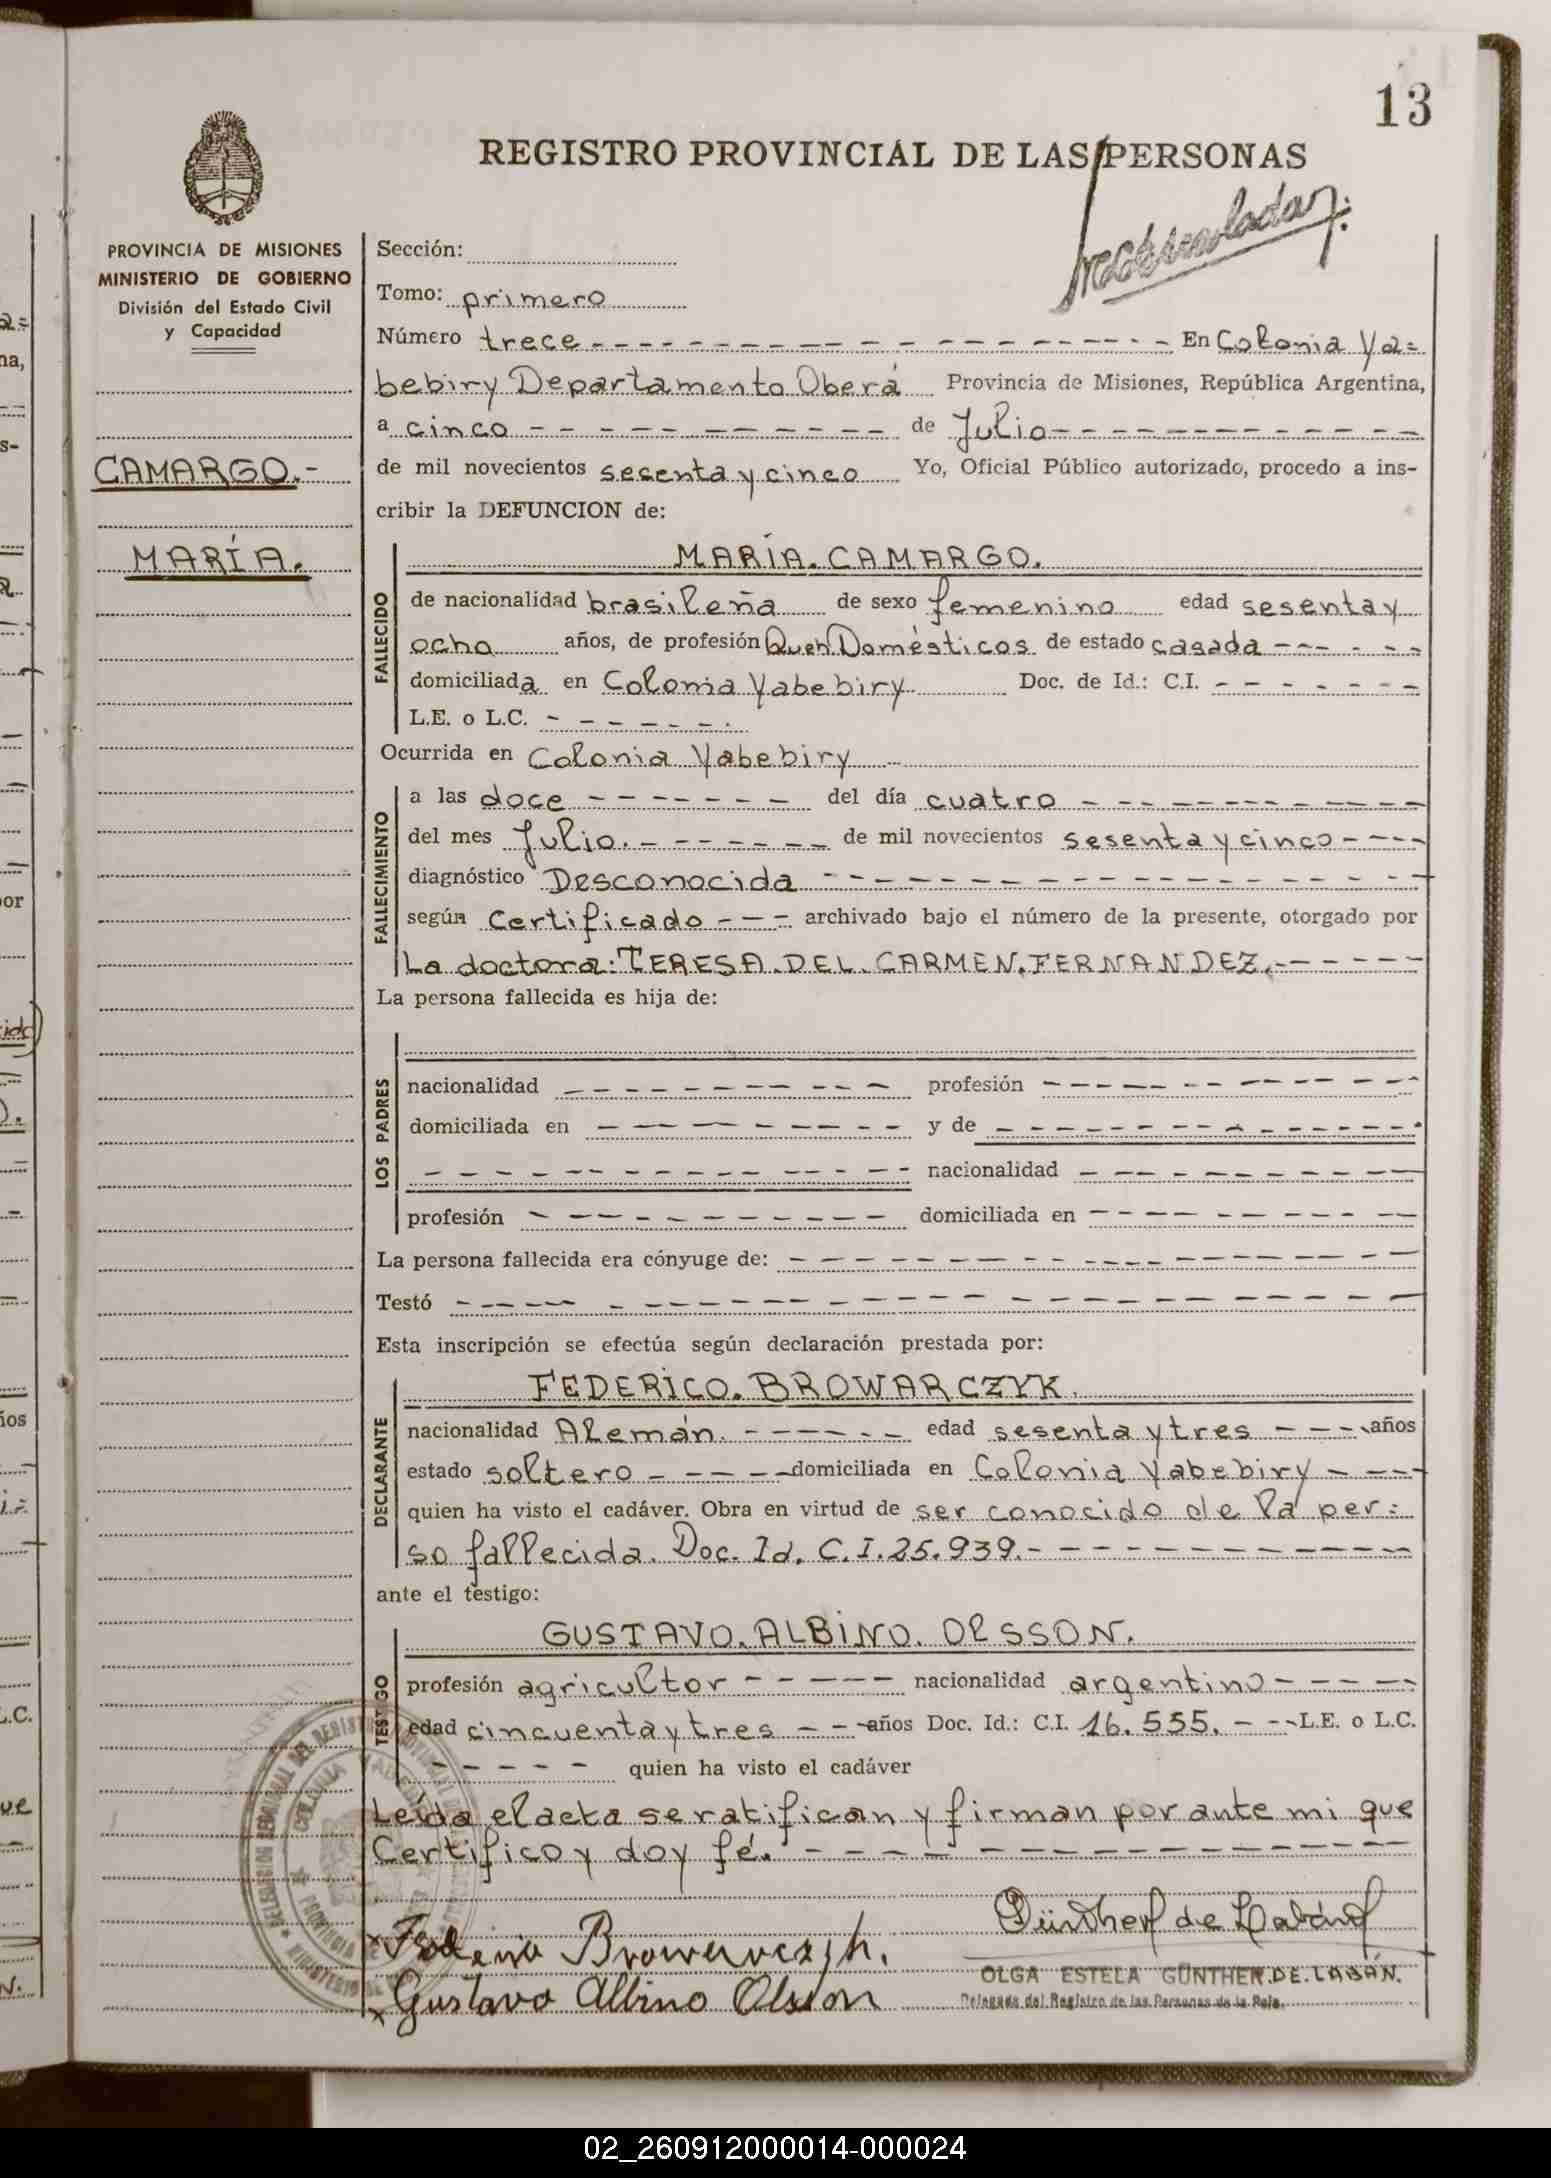 13
REGISTRO PROVINCIAL DE LAS PERSONAS
PROVINCIA DE MISIONES
MINISTERIO DE GOBIERNO
División del Estado Civil
y Capacidad
CAMARGO.-
MARÍA.
Sección:
Tomo: primero
Número trece - - - En Colonia Ya=
bebiry Departamento Oberá Provincia de Misiones, República Argentina,
a cinco - - - de Julio - - -
de mil novecientos sesenta y cinco Yo, Oficial Público autorizado, procedo a ins-
cribir la DEFUNCION de:
MARÍA. CAMARGO.
FALLECIDO
de nacionalidad brasileña de sexo femenino edad sesenta y
ocho años, de profesión Queh. Domésticos de estado casada - - -
domiciliada en Colonia Yabebiry Doc. de Id.: C.I. - - -
L.E. o L.C. - - -
Ocurrida en Colonia Yabebiry
FALLECIMIENTO
a las doce - - - del día cuatro - - -
del mes Julio. - - - de mil novecientos sesenta y cinco - - -
diagnóstico Desconocida - - -
según Certificado - - - archivado bajo el número de la presente, otorgado por
La doctora: TERESA. DEL. CARMEN. FERNANDEZ. - - -
La persona fallecida es hija de:
LOS PADRES
nacionalidad - - - profesión - - -
domiciliada en - - - y de - - -
- - - nacionalidad - - -
profesión - - - domiciliada en - - -
La persona fallecida era cónyuge de: - - -
Testó - - -
Esta inscripción se efectúa según declaración prestada por:
FEDERICO. BROWARCZYK.
DECLARANTE
nacionalidad Alemán. - - - edad sesenta y tres - - - años
estado soltero - - - domiciliada en Colonia Yabebiry - - -
quien ha visto el cadáver. Obra en virtud de ser conocido de la per=
so fallecida. Doc. Id. C.I. 25.939. - - -
ante el testigo:
GUSTAVO. ALBINO. OLSSON.
TESTIGO
profesión agricultor - - - nacionalidad argentino - - -
edad cincuenta y tres - - - años Doc. Id.: C.I. 16.555. - - - L.E. o L.C.
- - - quien ha visto el cadáver
Leída el acta se ratifican y firman por ante mi que
Certifico y doy fé. - - -
Günther de Labán
Gustavo Albino Olsson
OLGA ESTELA GÜNTHER. DE. LABÁN.
Delegada del Registro de las Personas de la Pcia.
02_260912000014-000024